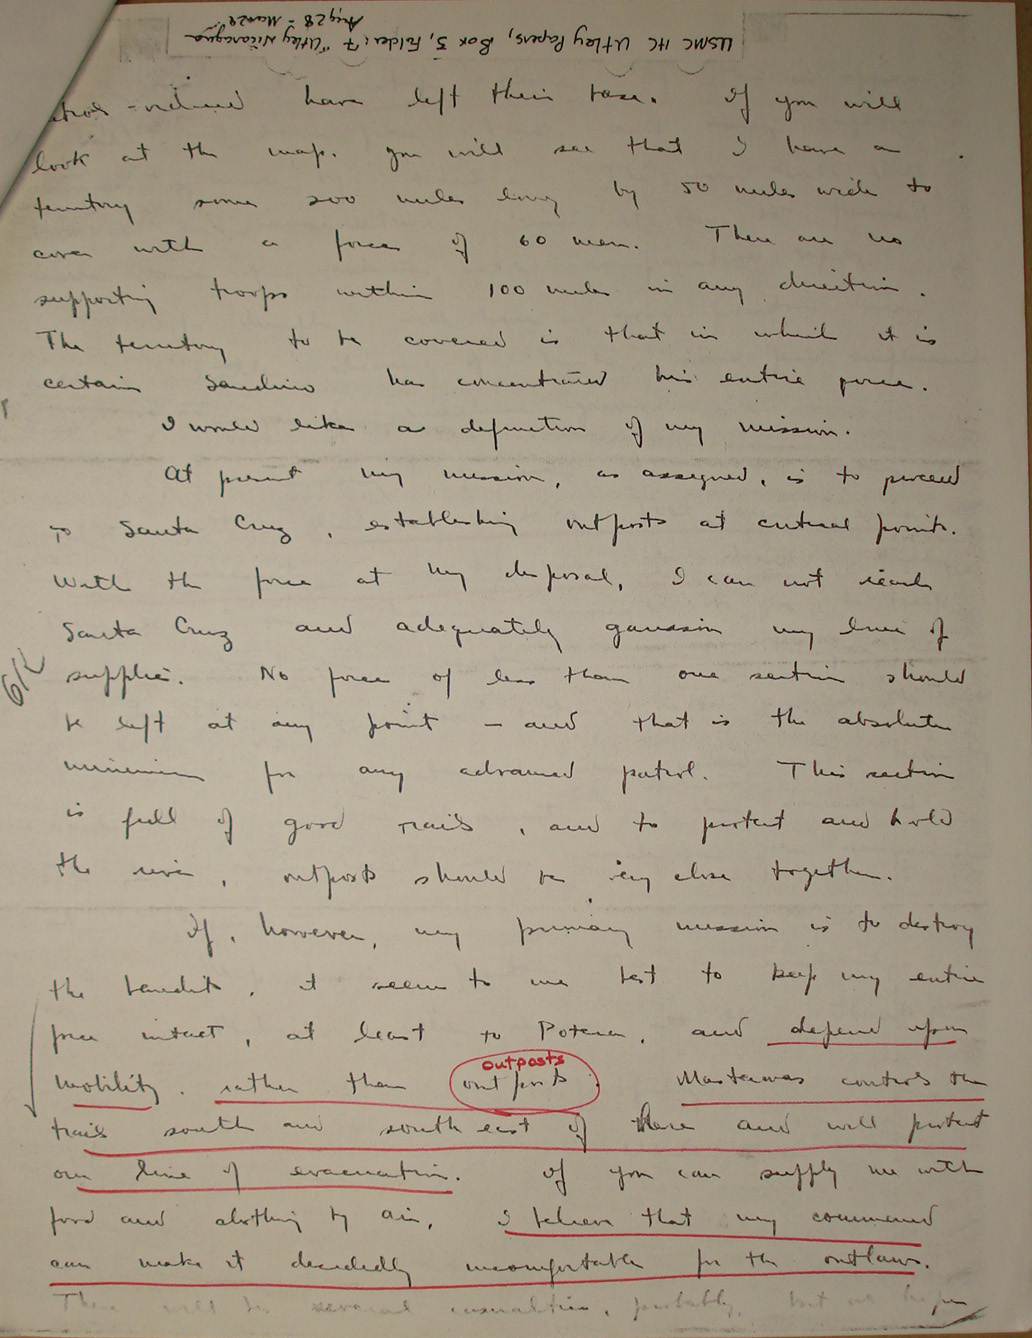 USMC HC Utley Papers, Box 3, Folder: 7 "Utley Nicaragua
Aug 28 - Mar 29
have left their base. If you will
look at the map, you will see that I have a
territory some 200 miles long by 50 miles wide to
cover with a force of 60 men. There are no
supporting troops within 100 miles in any direction.
The territory to be covered is that in which it is
certain Sandino has concentrated his entire force.
I would like a definition of my mission.
At present my mission, as assigned, is to proceed
to Santa Cruz, establishing outposts at critical points.
With the force at my disposal, I can not reach
Santa Cruz and adequately garrison my line of
supplies. No force of less than one section should
be left at any point - and that is the absolute
minimum for any advanced patrol. This section
is full of good trails, and to protect and hold
the river, outposts should be very close together.
If, however, my primary mission is to destroy
the bandits, it seems to me best to keep my entire
force intact, at least to Poteca, and depend upon
mobility, rather than outposts.
outposts
Mastawas controls the
trails south and south east of here and will protect
our line of evacuation. If you can supply me with
food and clothing by air, I believe that my command
can make it decidedly uncomfortable for the outlaws.
There will be several casualties, probably, but we hope